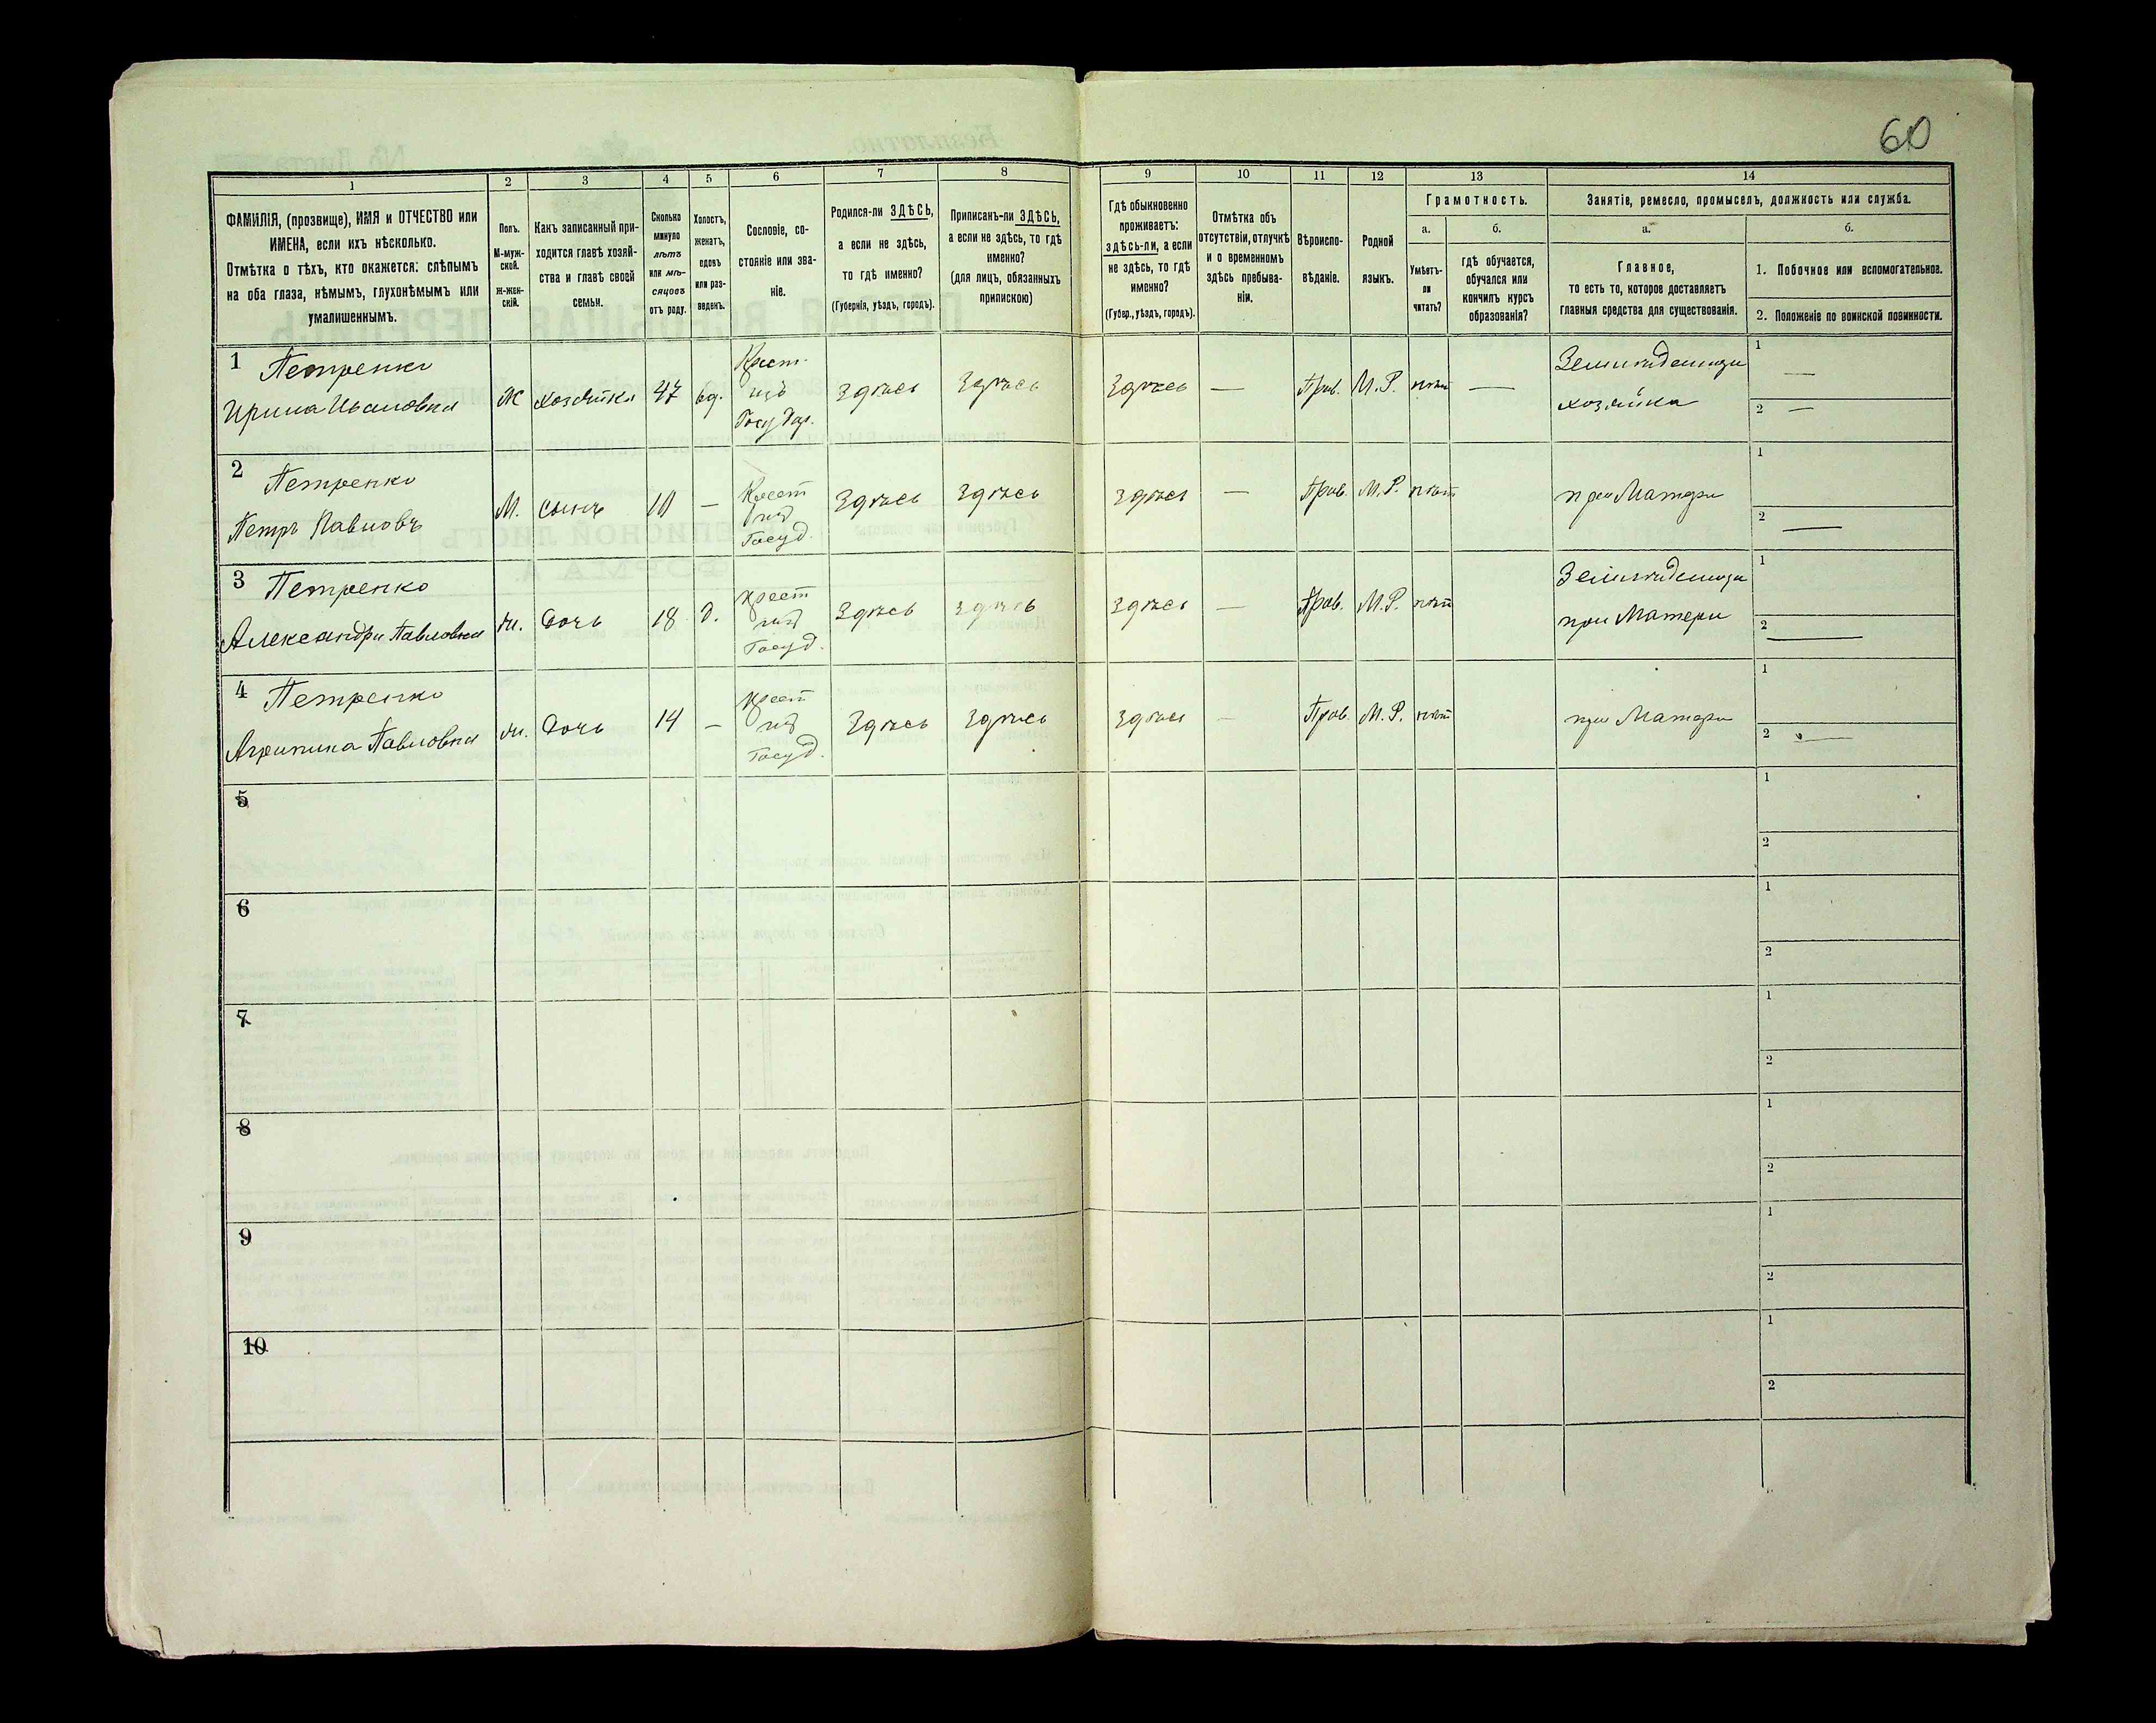 60
1 2 3 4 5 6 7 8 9 10 11 12 13 14
ФАМИЛІЯ, (прозвище), ИМЯ и ОТЧЕСТВО или
ИМЕНА, если ихъ нѣсколько.
Отмѣтка о тѣхъ, кто окажется: слѣпымъ
на оба глаза, нѣмымъ, глухонѣмымъ или
умалишеннымъ.
Полъ.
М-муж-
ской.
Ж-жен-
скій.
Какъ записанный при-
ходится главѣ хозяй-
ства и главѣ своей
семьи.
Сколько
минуло
лѣтъ
или мѣ-
сяцовъ
отъ роду.
Холостъ,
женатъ,
вдовъ
или раз-
веденъ.
Сословіе, со-
стояніе или зва-
ніе.
Родился-ли ЗДѢСЬ,
а если не здѣсь,
то гдѣ именно?
(Губернія, уѣздъ, городъ).
Приписанъ-ли ЗДѢСЬ,
а если не здѣсь, то гдѣ
именно?
(для лицъ, обязанныхъ
припискою)
Гдѣ обыкновенно
проживаетъ:
здѣсь-ли, а если
не здѣсь, то гдѣ
именно?
(Губер., уѣздъ, городъ).
Отмѣтка объ
отсутствіи, отлучкѣ
и о временномъ
здѣсь пребыва-
ніи.
Вѣроиспо-
вѣданіе.
Родной
языкъ.
Грамотность.
а.
Умѣетъ-
ли
читать?
б.
гдѣ обучается,
обучался или
кончилъ курсъ
образованія?
Занятіе, ремесло, промыселъ, должность или служба.
а.
Главное,
то есть то, которое доставляетъ
главныя средства для существованія.
б.
1. Побочное или вспомогательное.
2. Положеніе по воинской повинности.
1 Петренко
Ирина Ивановна
Ж
хозяйка
47
вд.
Крест.
изъ
Государ.
Здѣсь
Здѣсь
Здѣсь
—
Прав.
М.Р.
нѣтъ
—
Земледѣлица
хозяйка
1 —
2 —
2 Петренко
Петръ Павловъ
М.
сынъ
10
—
Крест
изъ
Госуд.
Здѣсь
Здѣсь
Здѣсь
—
Прав.
М.Р.
нѣтъ
при Матери
1
2 —
3 Петренко
Александра Павловна
ж.
дочь
18
д.
Крест
изъ
Госуд.
Здѣсь
Здѣсь
Здѣсь
—
Прав.
М.Р.
нѣтъ
Земледѣлица
при Матери
1
2 —
4 Петренко
Агрипина Павловна
ж.
дочь
14
—
Крест
изъ
Госуд.
Здѣсь
Здѣсь
Здѣсь
—
Прав.
М.Р.
нѣтъ
при Матери
1
2 —
5
1
2
6
1
2
7
1
2
8
1
2
9
1
2
10
1
2